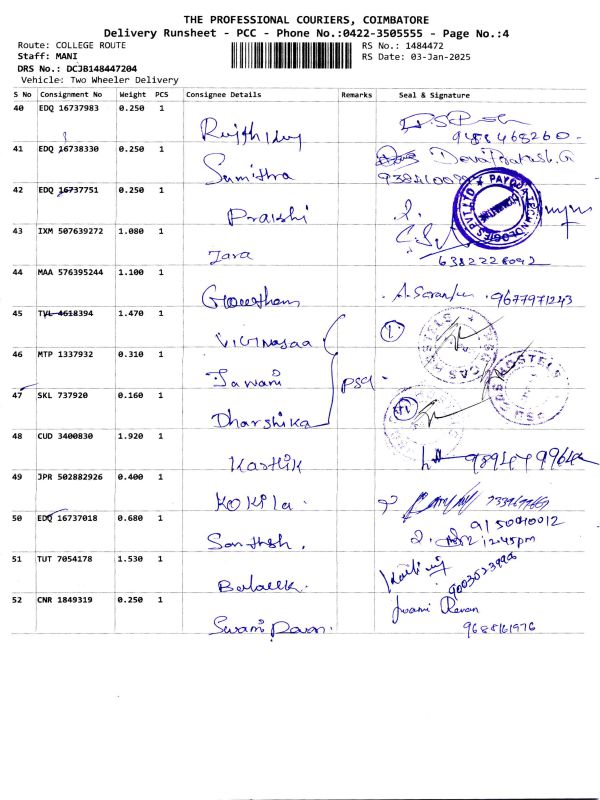 THE PROFESSIONAL COURIERS, COIMBATORE
Delivery Runsheet - PCC - Phone No.:0422-3505555 - Page No.:4
Route: COLLEGE ROUTE
RS No.: 1484472
Staff: MANI
RS Date: 03-Jan-2025
DRS No.: DCJB148447204
Vehicle: Two Wheeler Delivery
S No Consignment No Weight PCS Consignee Details Remarks Seal & Signature
40 EDQ 16737983 0.250 1
9488468260
41 EDQ 16738330 0.250 1
Sumithra
42 EDQ 16737751 0.250 1
PAYODA TECHNOLOGIES PVT LTD
43 IXM 507639272 1.080 1
Jara
6382228092
44 MAA 576395244 1.100 1
Gowtham
9677971243
45 TVL 4618394 1.470 1
46 MTP 1337932 0.310 1
Jawani
PSG
47 SKL 737920 0.160 1
HOSTELS
Dharshika
48 CUD 3400830 1.920 1
Karthik
49 JPR 502882926 0.400 1
Kokila
50 EDQ 16737018 0.680 1
9150010012
Santhsh.
12:45pm
51 TUT 7054178 1.530 1
52 CNR 1849319 0.250 1
Swami Ravan